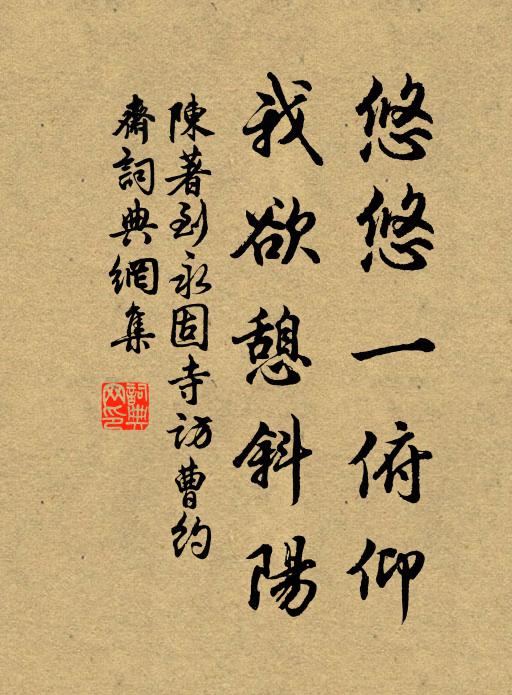 悠悠一俯仰
我欲憩斜陽
陳著到永固寺訪曹約
齋詞典網集
詞典网印